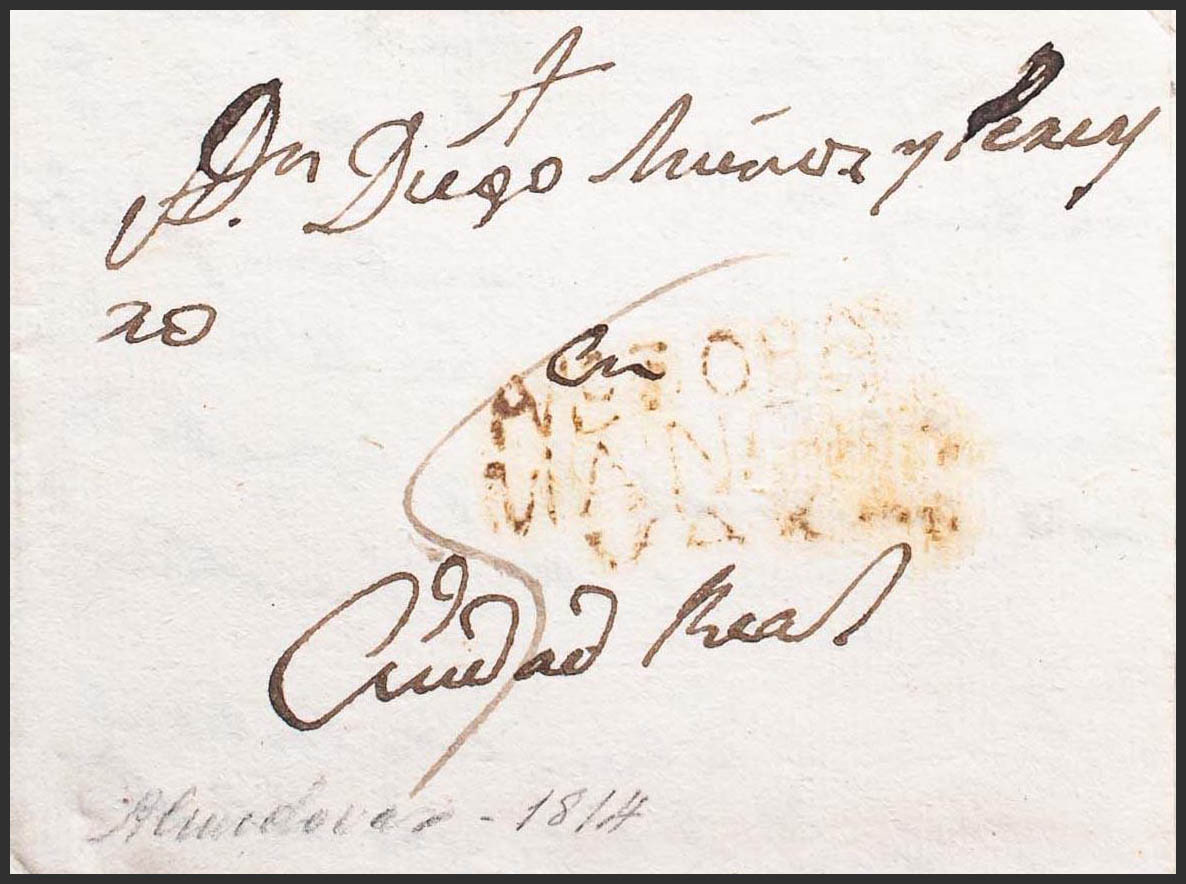 Dn. Diego Muñoz y Perey
ro
en
Ciudad Real
Almodovar - 1814